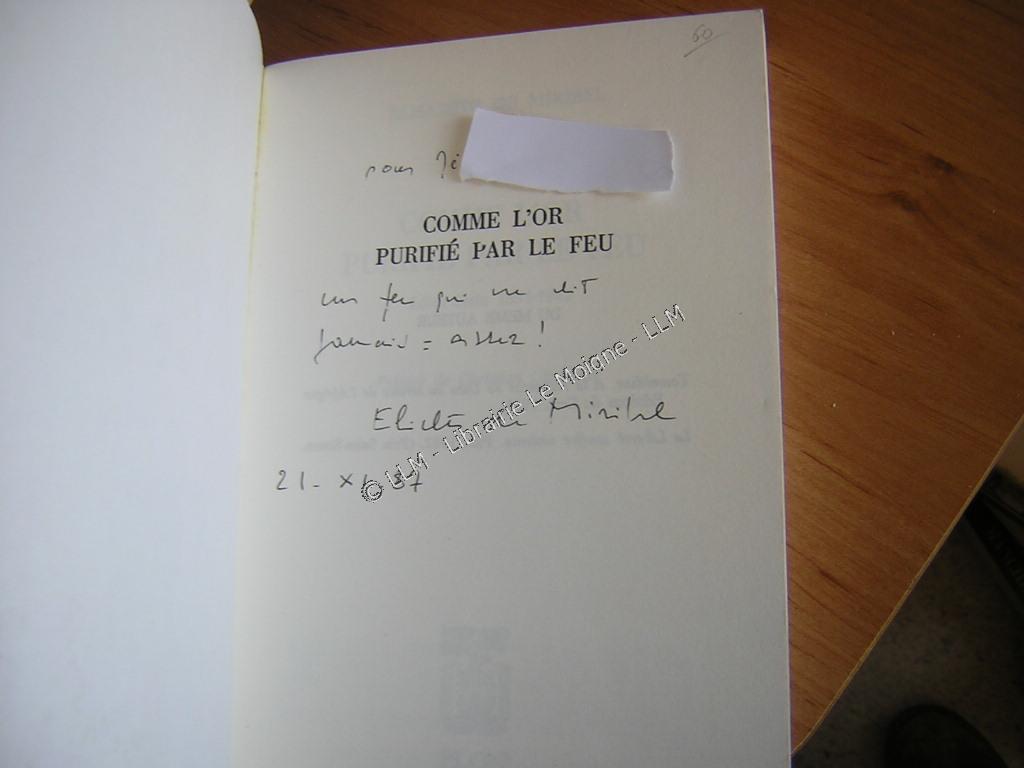 60
pour Jé
COMME L'OR
PURIFIÉ PAR LE FEU
un feu qui ne dit
jamais = assez !
Elisabeth de Miribel
21 - XI - 87
© LLM - Librairie Le Moigne - LLM